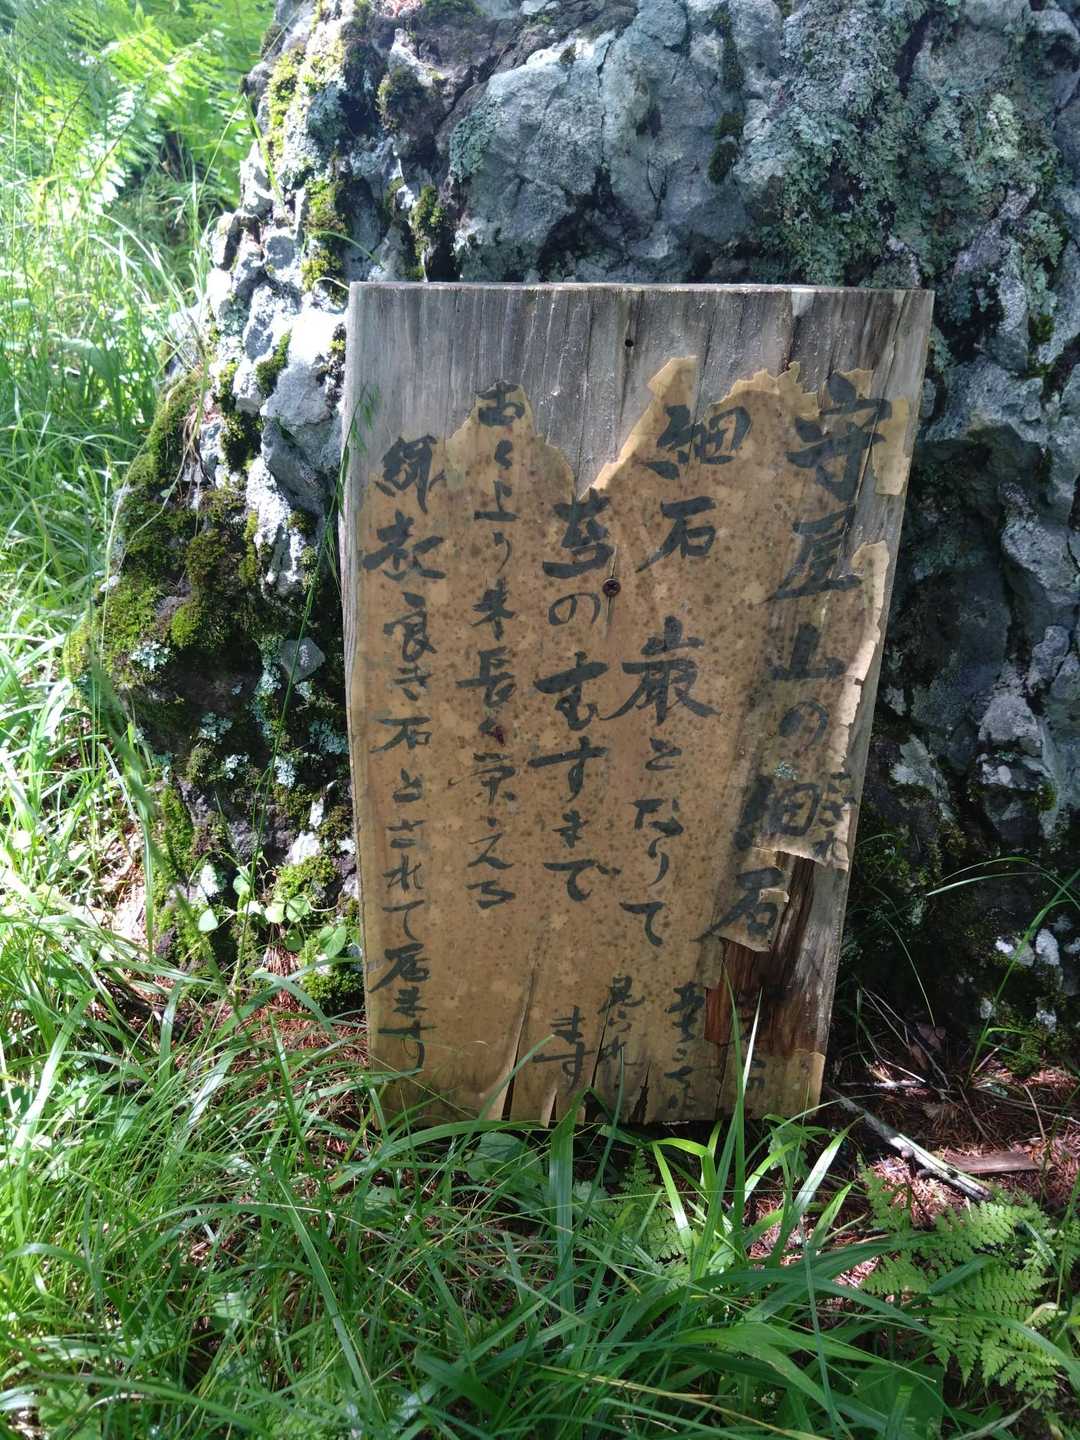 守屋山の細石
細石 巌となりて
苔のむすまで
おくより末長く栄える
縁起良き石とされて居ます
見られ
ます